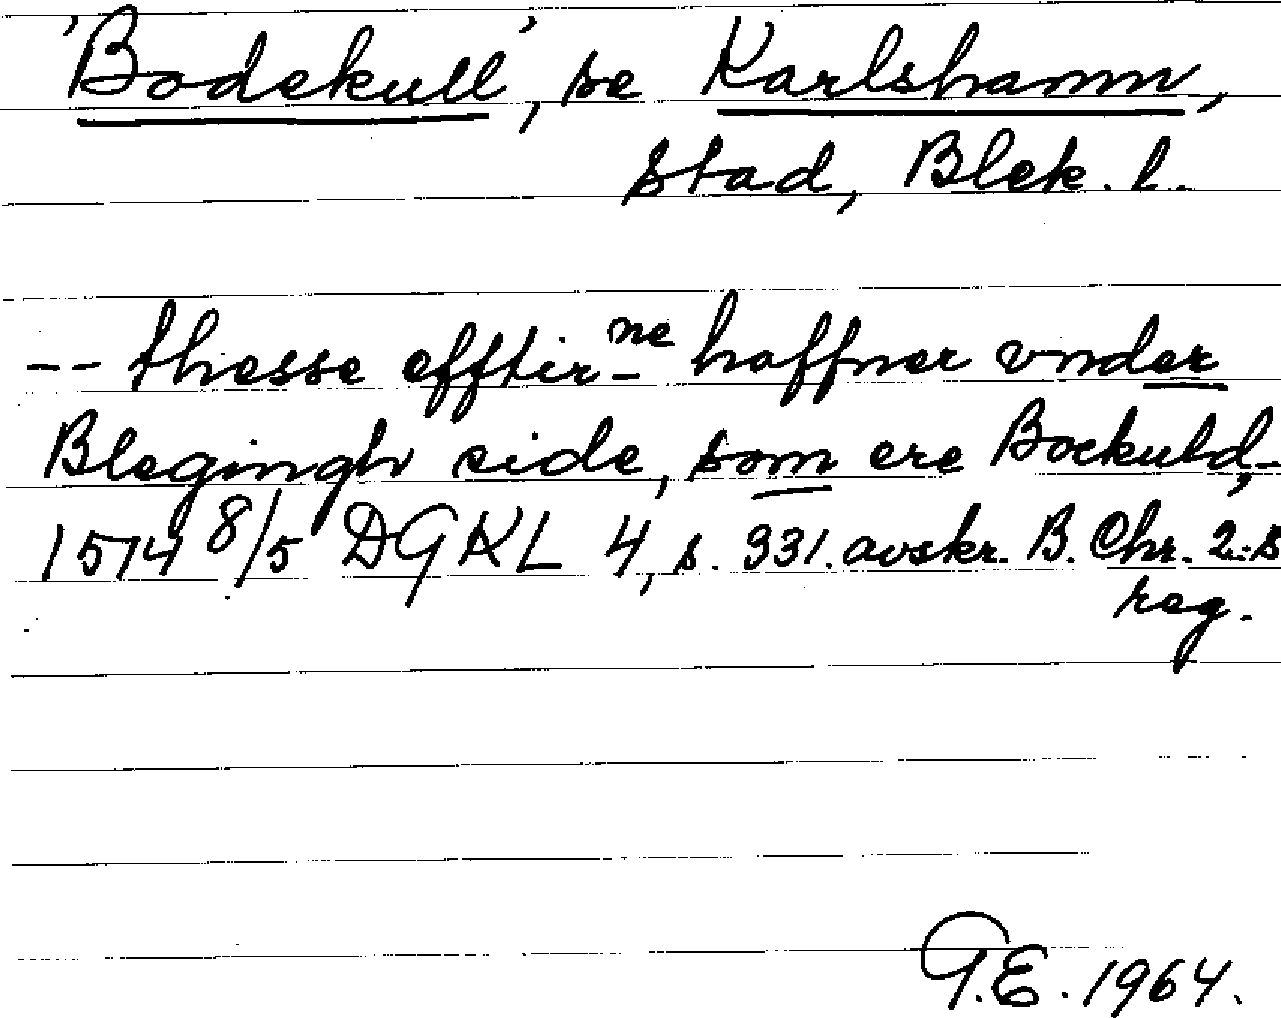 'Bodekull', se Karlshamn,
stad, Blek. l.
-- thesse efftir-ne haffner vnder
Blegingh side, som ere Boekuld,-
1574 8/5 DGKL 4, s. 331. avskr. B. Chr. 2:s
reg.
G.E. 1964.